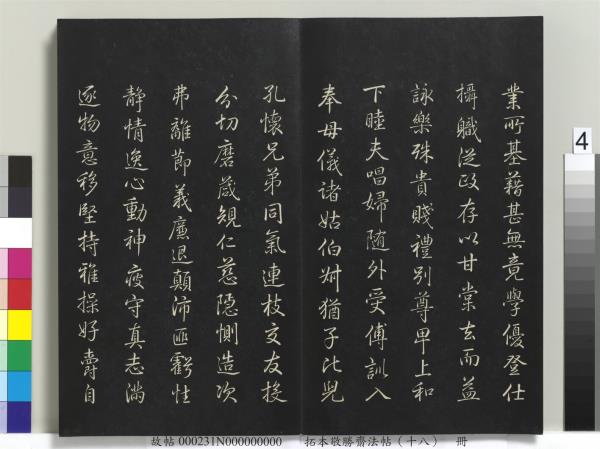 業所基藉甚無竟學優登仕
攝職從政存以甘棠去而益
詠樂殊貴賤禮別尊卑上和
下睦夫唱婦随外受傅訓入
奉母儀諸姑伯叔猶子比兒
孔懷兄弟同氣連枝交友投
分切磨箴規仁慈隱惻造次
弗離節義廉退顛沛匪虧性
静情逸心動神疲守真志滿
逐物意移堅持雅操好爵自
4
故帖 000231N000000000 拓本敬勝齋法帖（十八） 冊